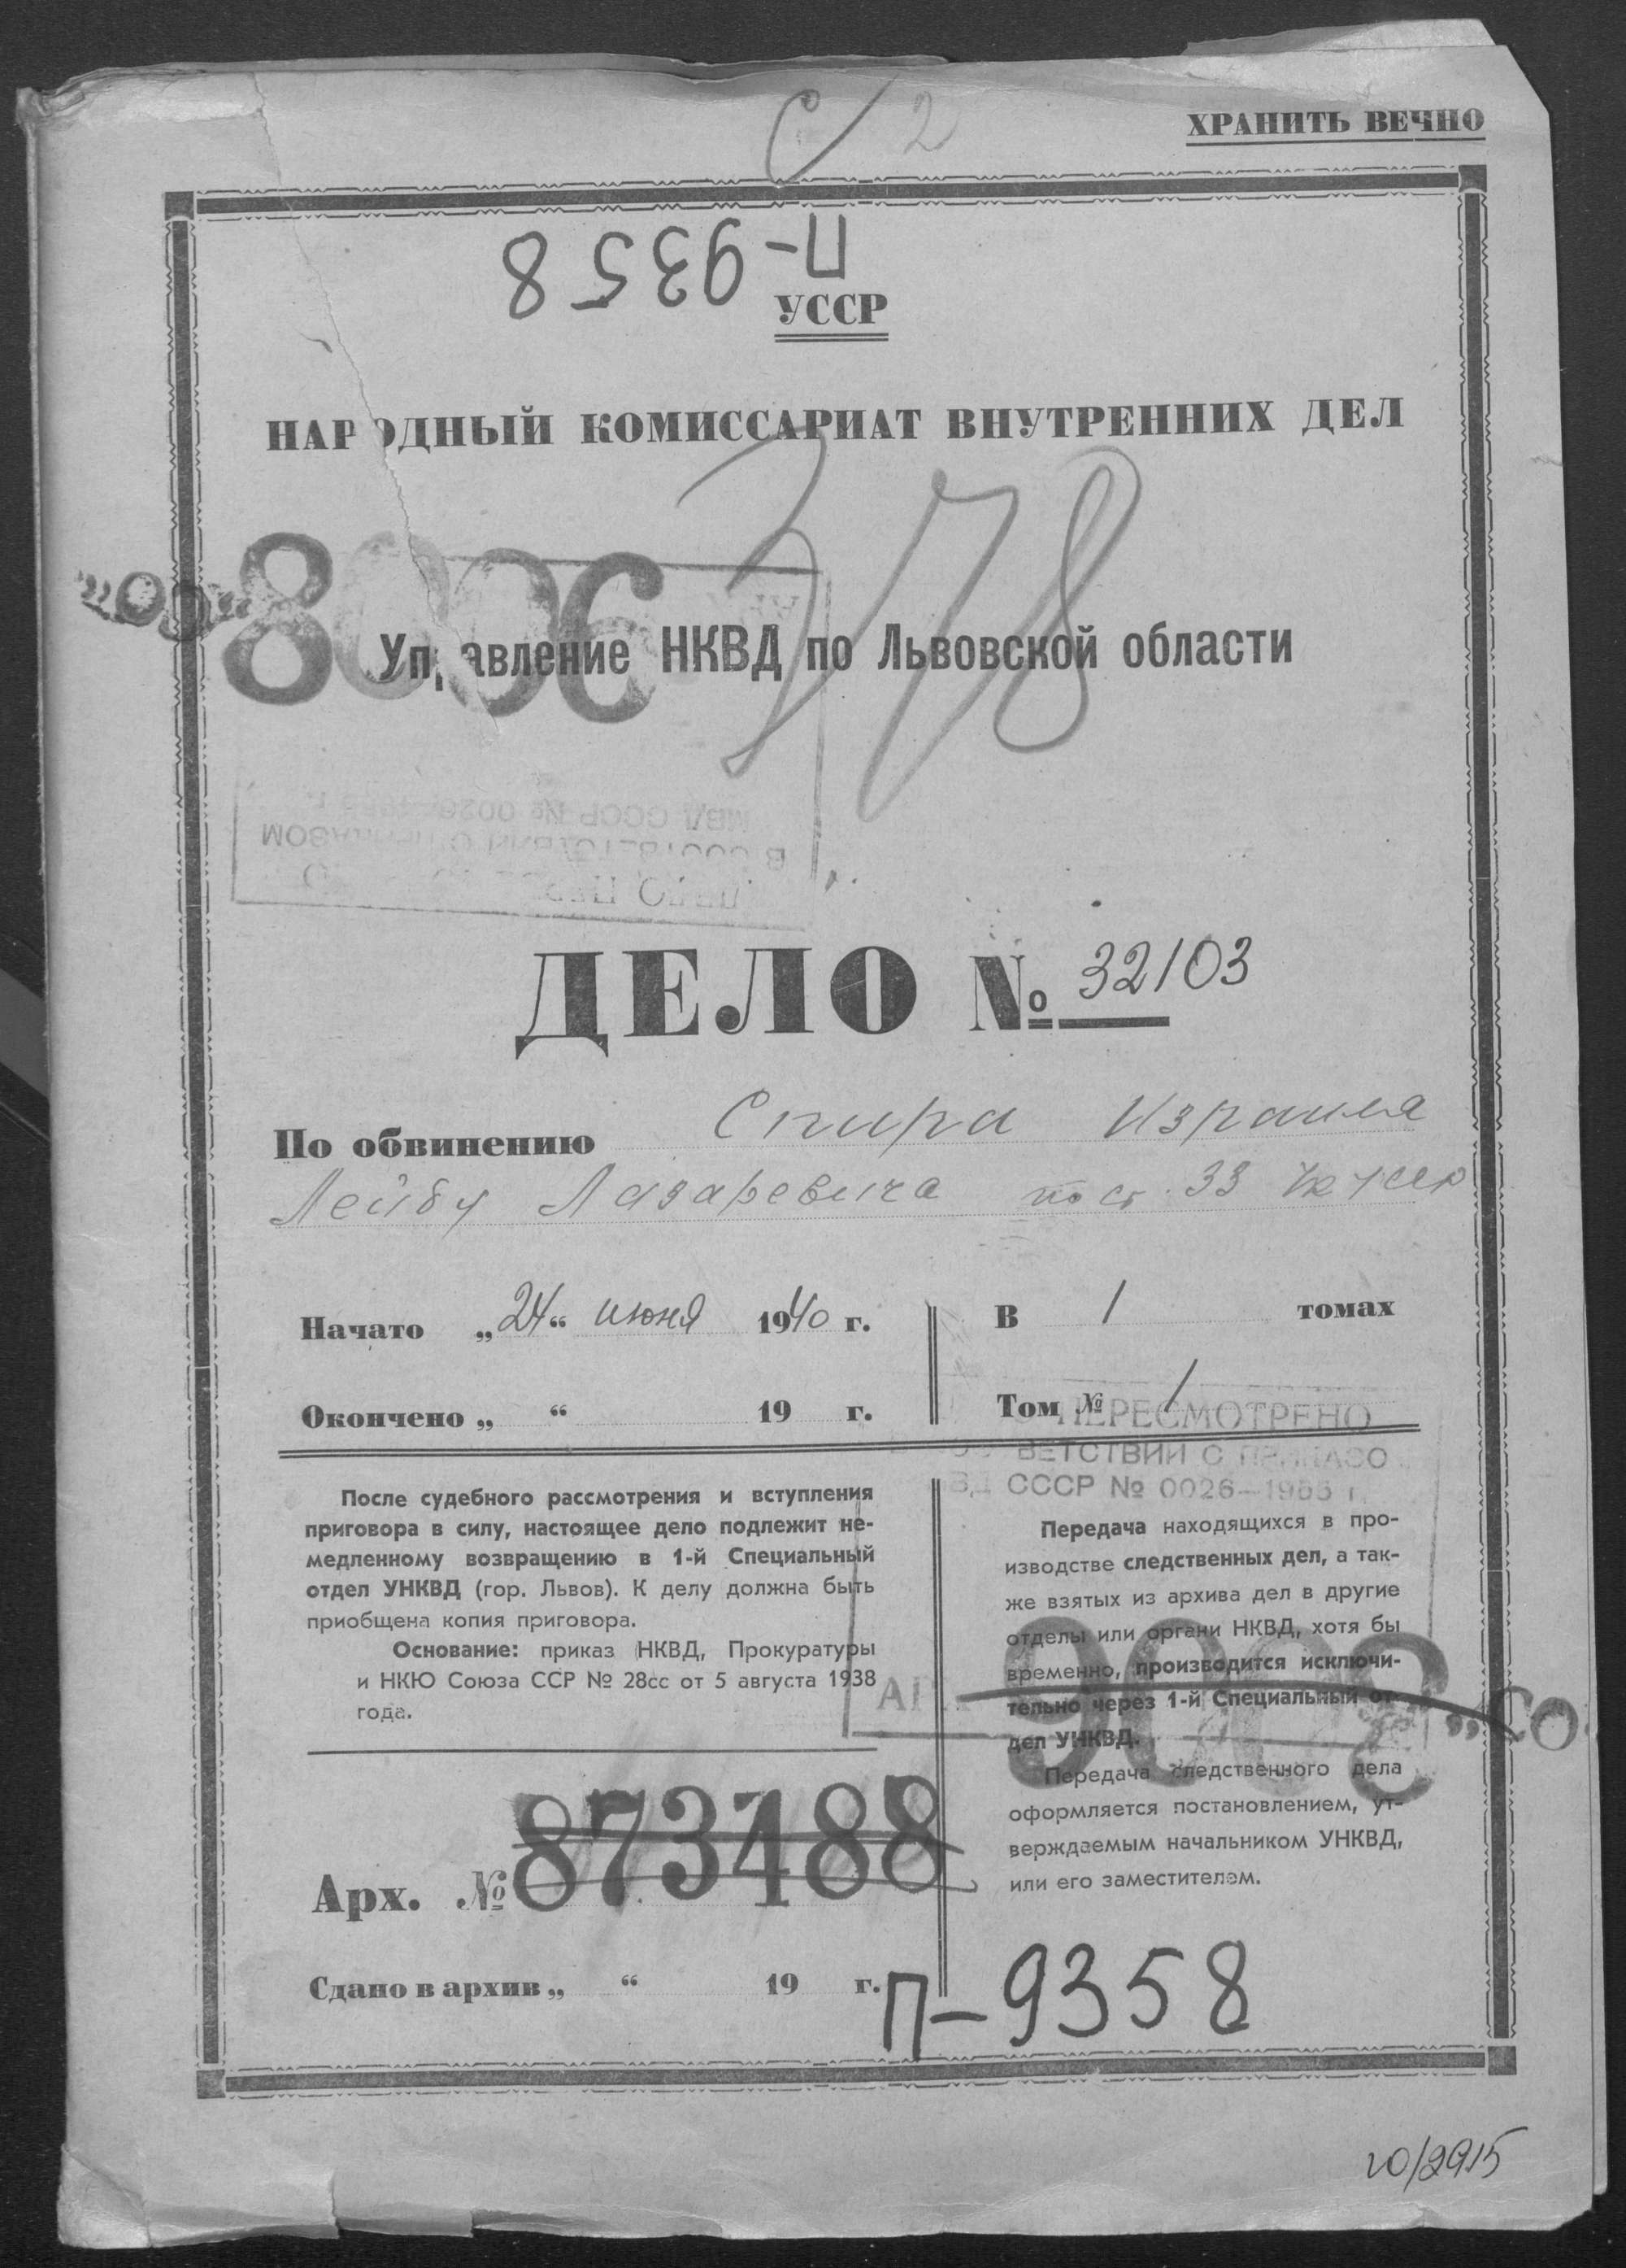 ХРАНИТЬ ВЕЧНО
С/ 2
П-9358
УССР
НАРОДНЫЙ КОМИССАРИАТ ВНУТРЕННИХ ДЕЛ
Управление НКВД по Львовской области
В СООТВЕТСТВИИ С ПРИКАЗОМ
МВД СССР № 0026-1955 г.
ДЕЛО № 32103
По обвинению Спира Израиля
Лейбу Лазаревича по ст. 33 УК УССР
Начато „24“ июня 1940 г.
В 1 томах
Окончено „ “ 19 г.
Том № 1
ПЕРЕСМОТРЕНО
ВЕТСТВИИ С
ВД СССР № 0026-1955 г.
После судебного рассмотрения и вступления
приговора в силу, настоящее дело подлежит не-
медленному возвращению в 1-й Специальный
отдел УНКВД (гор. Львов). К делу должна быть
приобщена копия приговора.
Основание: приказ НКВД, Прокуратуры
и НКЮ Союза ССР № 28сс от 5 августа 1938
года.
Передача находящихся в про-
изводстве следственных дел, а так-
же взятых из архива дел в другие
отделы или органи НКВД, хотя бы
временно, производится исключи-
тельно через 1-й Специальный от-
дел УНКВД.
Передача следственного дела
оформляется постановлением, ут-
верждаемым начальником УНКВД,
или его заместителем.
Арх. № 873488
Сдано в архив „ “ 19 г.
П-9358
10/2915